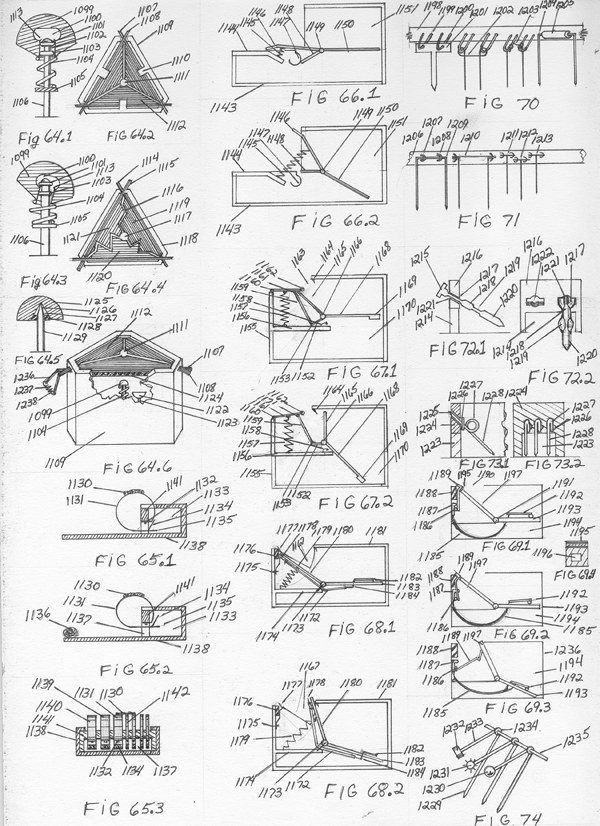 1113 1099 1100 1101 1102 1103 1104 1105 1106
Fig 64.1
1107 1108 1109 1110 1111 1112
FIG 64.2
1099 1100 1101 1113 1103 1104 1105 1106
Fig 64.3
1114 1115 1116 1119 1117 1118 1121 1120
FIG 64.4
1125 1126 1127 1128 1129
FIG 64.5
1112 1111 1107 1236 1237 1238 1108 1124 1122 1123 1099 1104 1109
FIG 64.6
1130 1131 1141 1132 1133 1134 1135 1138
FIG 65.1
1130 1131 1141 1134 1135 1133 1136 1137 1138
FIG 65.2
1139 1131 1130 1142 1140 1141 1138 1132 1134 1137
FIG 65.3
1144 1145 1146 1147 1148 1149 1150 1151 1143
FIG 66.1
1146 1147 1148 1145 1144 1149 1150 1151 1143
FIG 66.2
1163 1164 1165 1166 1168 1159 1158 1157 1156 1155 1153 1152 1169 1170
FIG 67.1
1164 1165 1166 1168 1159 1158 1157 1156 1155 1153 1152 1169 1170
FIG 67.2
1177 1178 1179 1180 1181 1176 1175 1112 1182 1183 1184 1174 1173 1172
FIG 68.1
1167 1177 1178 1180 1181 1176 1175 1179 1182 1183 1184 1174 1173 1172
FIG 68.2
1198 1199 1200 1201 1202 1203 1204 1205
FIG 70
1206 1207 1208 1209 1210 1211 1212 1213
FIG 71
1215 1216 1217 1218 1219 1220 1221 1214
FIG 72.1
1216 1222 1221 1217 1214 1218 1219 1220
FIG 72.2
1225 1226 1227 1228 1224 1223
FIG 73.1
1224 1227 1226 1228 1223
FIG 73.2
1189 1195 1190 1197 1188 1187 1186 1185 1191 1192 1193 1194
FIG 69.1
1195 1196
1189 1197 1188 1187 1186 1192 1193 1194 1185
FIG 69.2
1189 1197 1188 1187 1186 1185 1236 1194 1192 1193
FIG 69.3
1232 1233 1234 1235 1231 1230 1229
FIG 74